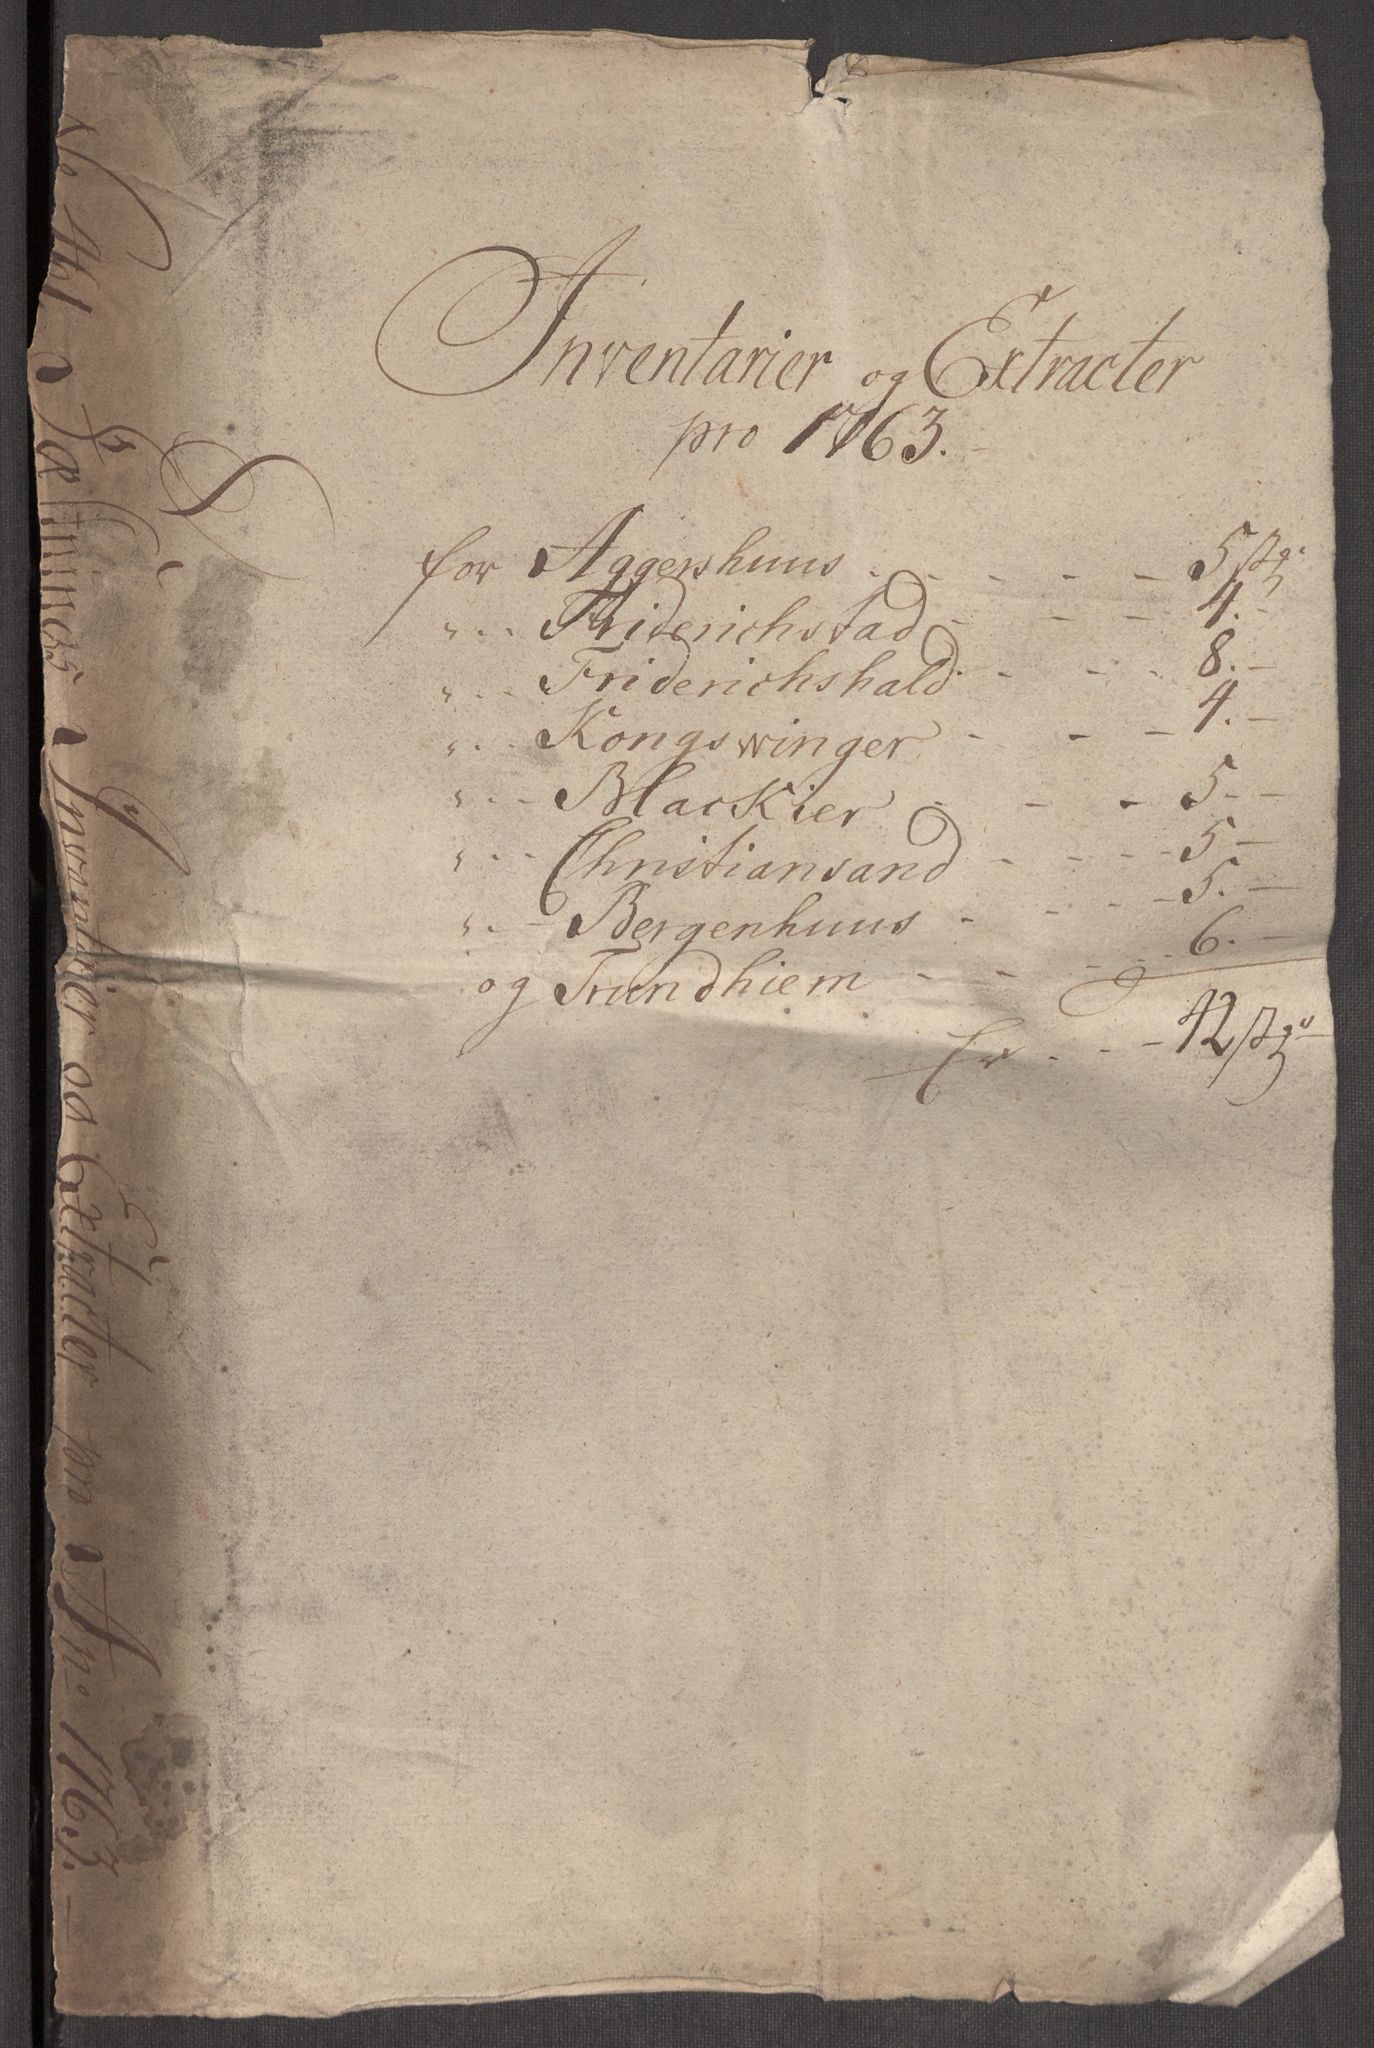 Inventarier og Extracter
pro 1763.
for Aggershuus - - - - 5 stk.
" - - Friderichstad - - - 4. -
" - - Friderichshald - - - 8. -
" - - Kongswinger - - - 4. -
" - - Blackier - - - 5. -
" - - Christiansand - - - 5 -
" - - Bergenhuus - - - 5. -
og Trundhiem - - - 6. -
Er - - - 42 stk.
No 461
Inventier og Extracter pro An: 1763. -